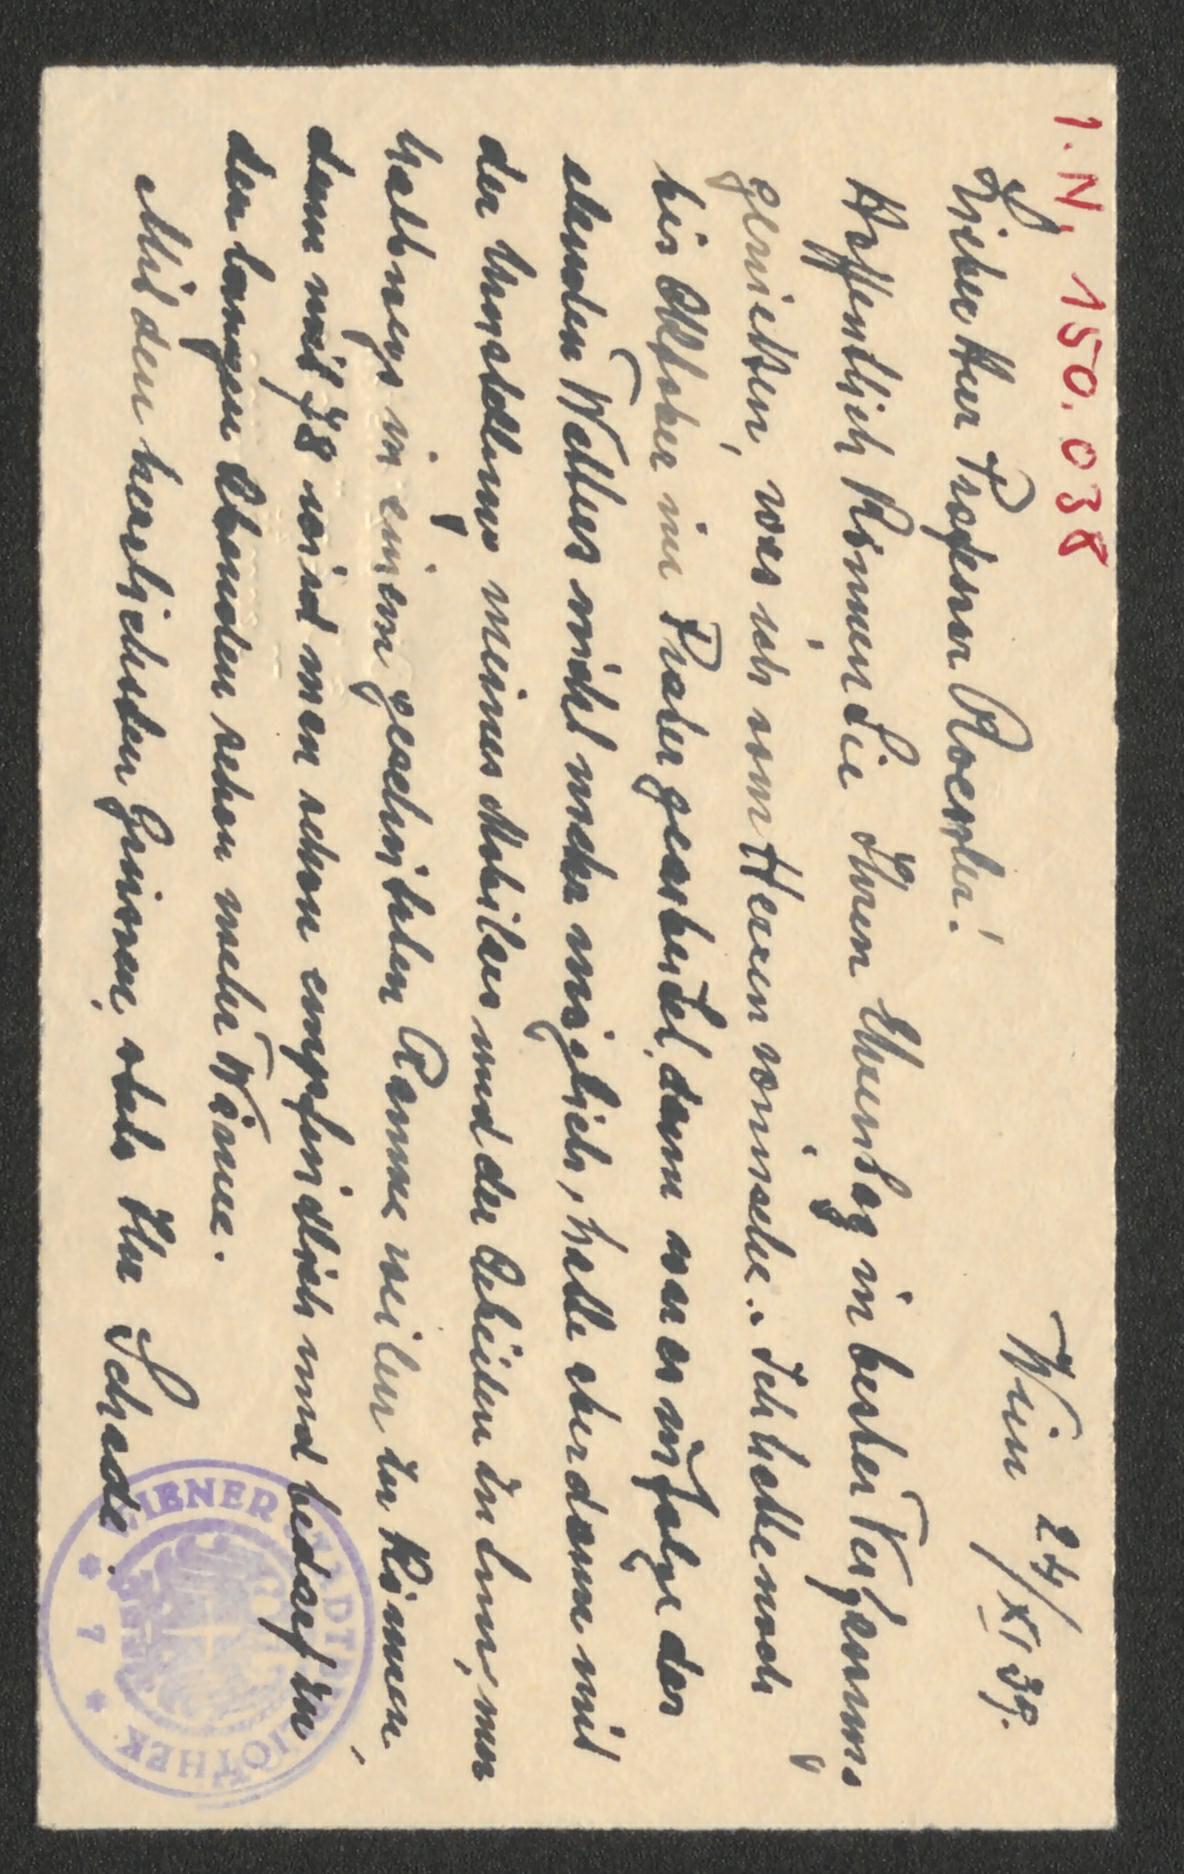 I. N. 150.038
Wien 24/XI 39.
Lieber Herr Professor Roessler!
Hoffentlich können Sie Ihren Ehrentag in bester Verfassung
genießen, was ich vom Herzen wünsche. Ich habe noch
bis Oktober im Prater gearbeitet, dann war es infolge des
Wetters nicht mehr möglich, hatte aber dann mit
der Umstellung meines Mobilars und der Arbeiten zu tun, um
halbwegs in einem geschützten Raume weilen zu können,
denn mit 78 wird man schon empfindlich und bedarf zu
den langen Abenden schon mehr Wärme.
Mit den herzlichsten Grüssen, stets Ihr
WIENER STADTBIBLIOTHEK
* 7 *